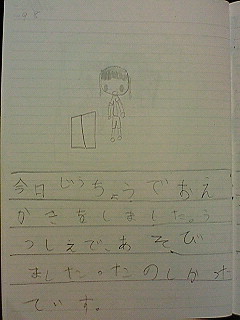 今日じうちょうでおえ
かきをしました。う
つしえで、あそび
ました。たのしかった
でいす。